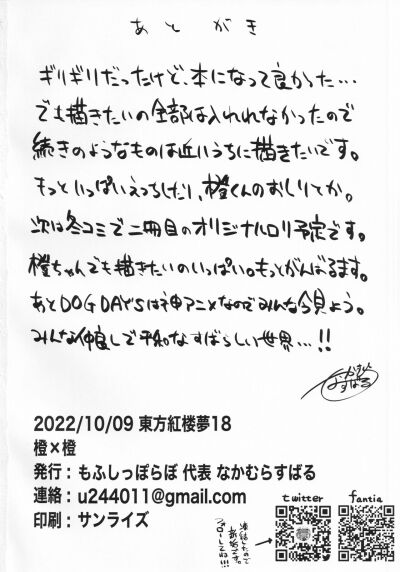 あとがき
ギリギリだったけど、本になって良かった…
でも描きたいの全部は入れれなかったので
続きのようなものは近いうちに描きたいです。
もっといっぱいえっちしたり、橙くんのおしりとか。
次は冬コミで二冊目のオリジナルロリ予定です。
橙ちゃんでも描きたいのいっぱい。もっとがんばるます。
あとDOG DAY'Sは神アニメなのでみんな今見よう。
みんな仲良しで平和なすばらしい世界…!!
なかむらすばる
2022/10/09 東方紅楼夢18
橙×橙
発行：もふしっぽらぼ 代表 なかむらすばる
連絡：u244011@gmail.com
印刷：サンライズ
twitter
fantia
凍結したので
新垢です。
フォローしてね!!!